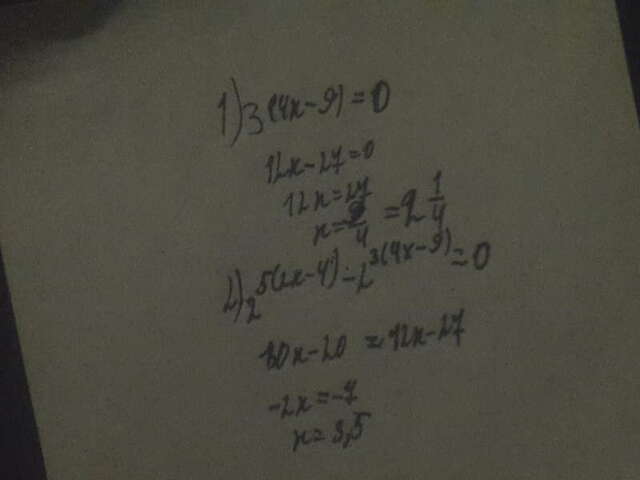 1) 3(4x-9)=0
12x-27=0
12x=27
x=9/4=2 1/4
2) 2^5(2x-4)-2^3(4x-9)=0
10x-20=12x-27
-2x=-7
x=3,5